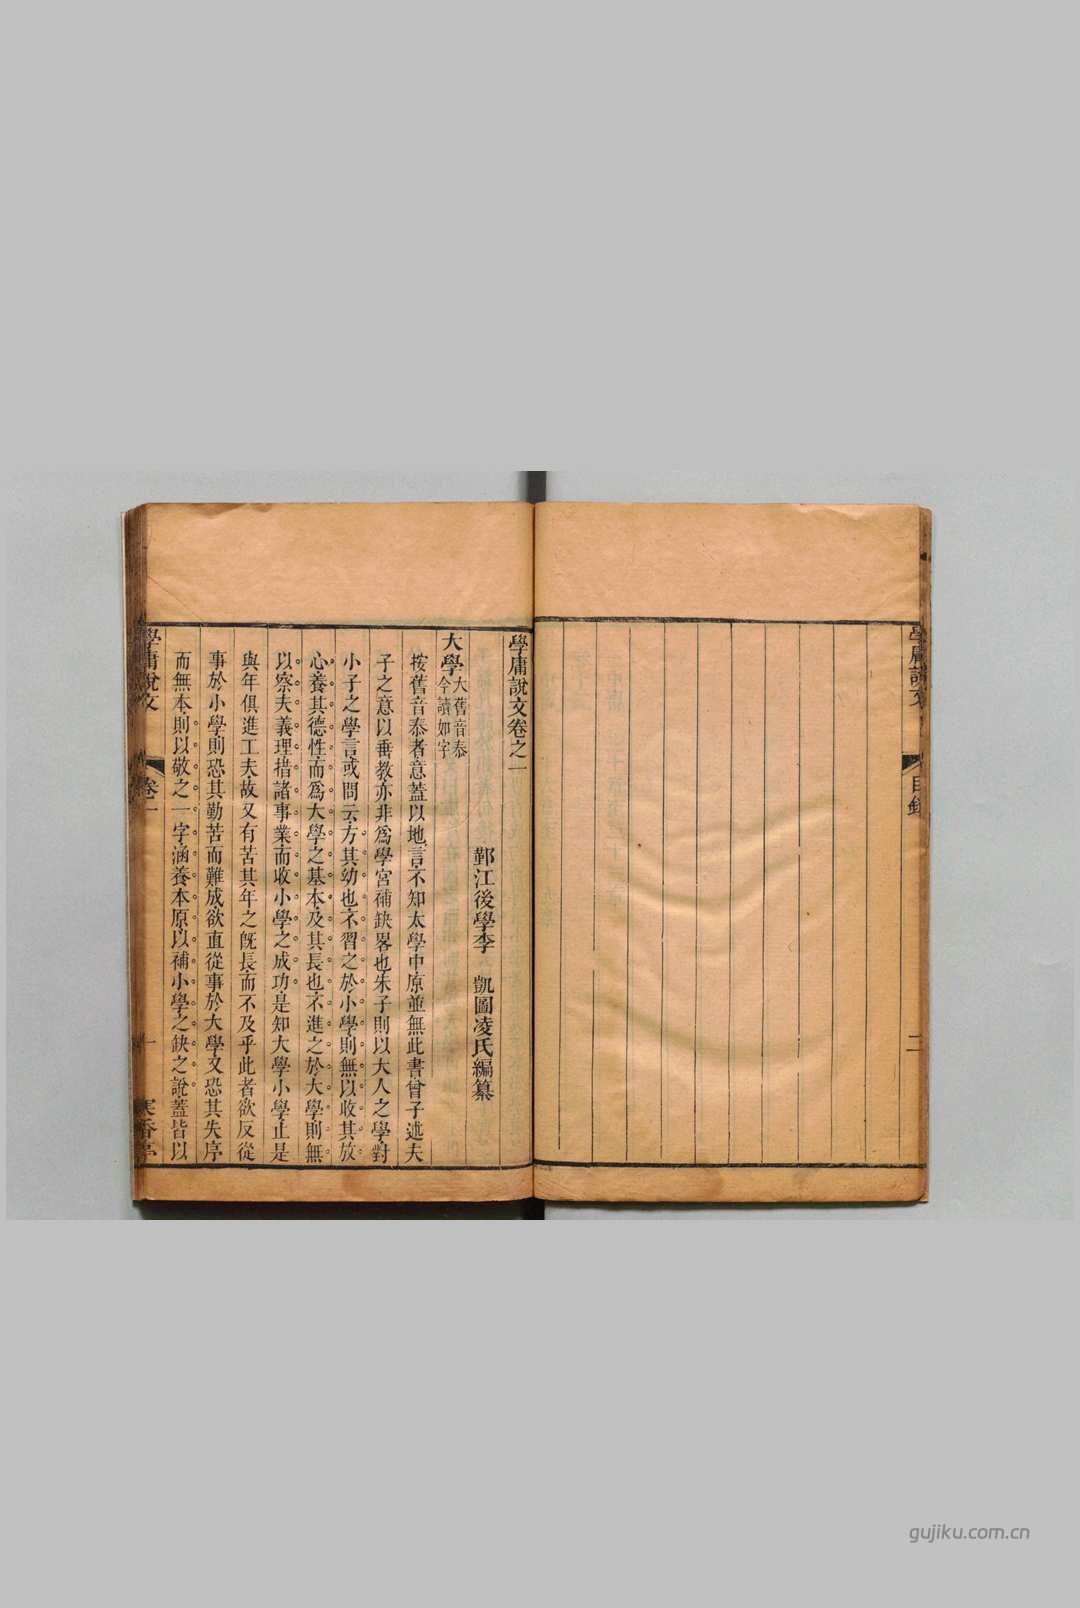 學庸說文
目錄
二
學庸說文卷之一
鄞江後學李 凱圖凌氏編纂
大學大舊音泰今讀如字
按舊音泰者意蓋以地言不知太學中原並無此書曾子述夫
子之意以垂教亦非爲學宮補缺畧也朱子則以大人之學對
小子之學言或問云方其幼也不習之於小學則無以收其放
心養其德性而爲大學之基本及其長也不進之於大學則無
以察夫義理措諸事業而收小學之成功是知大學小學止是
與年俱進工夫故又有苦其年之旣長而不及乎此者欲反從
事於小學則恐其勤苦而難成欲直從事於大學又恐其失序
而無本則以敬之一字涵養本原以補小學之缺之說蓋皆以
學庸說文
卷一
一
香亭
gujiku.com.cn